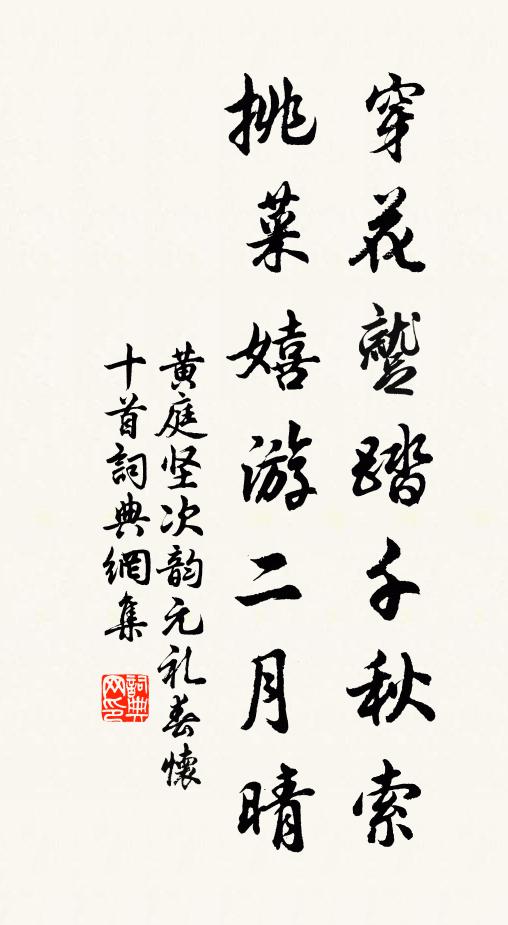 穿花蹵踏千秋索
挑菜嬉游二月晴
黄庭坚次韵元礼春懷
十首詞典網集
詞典
网印